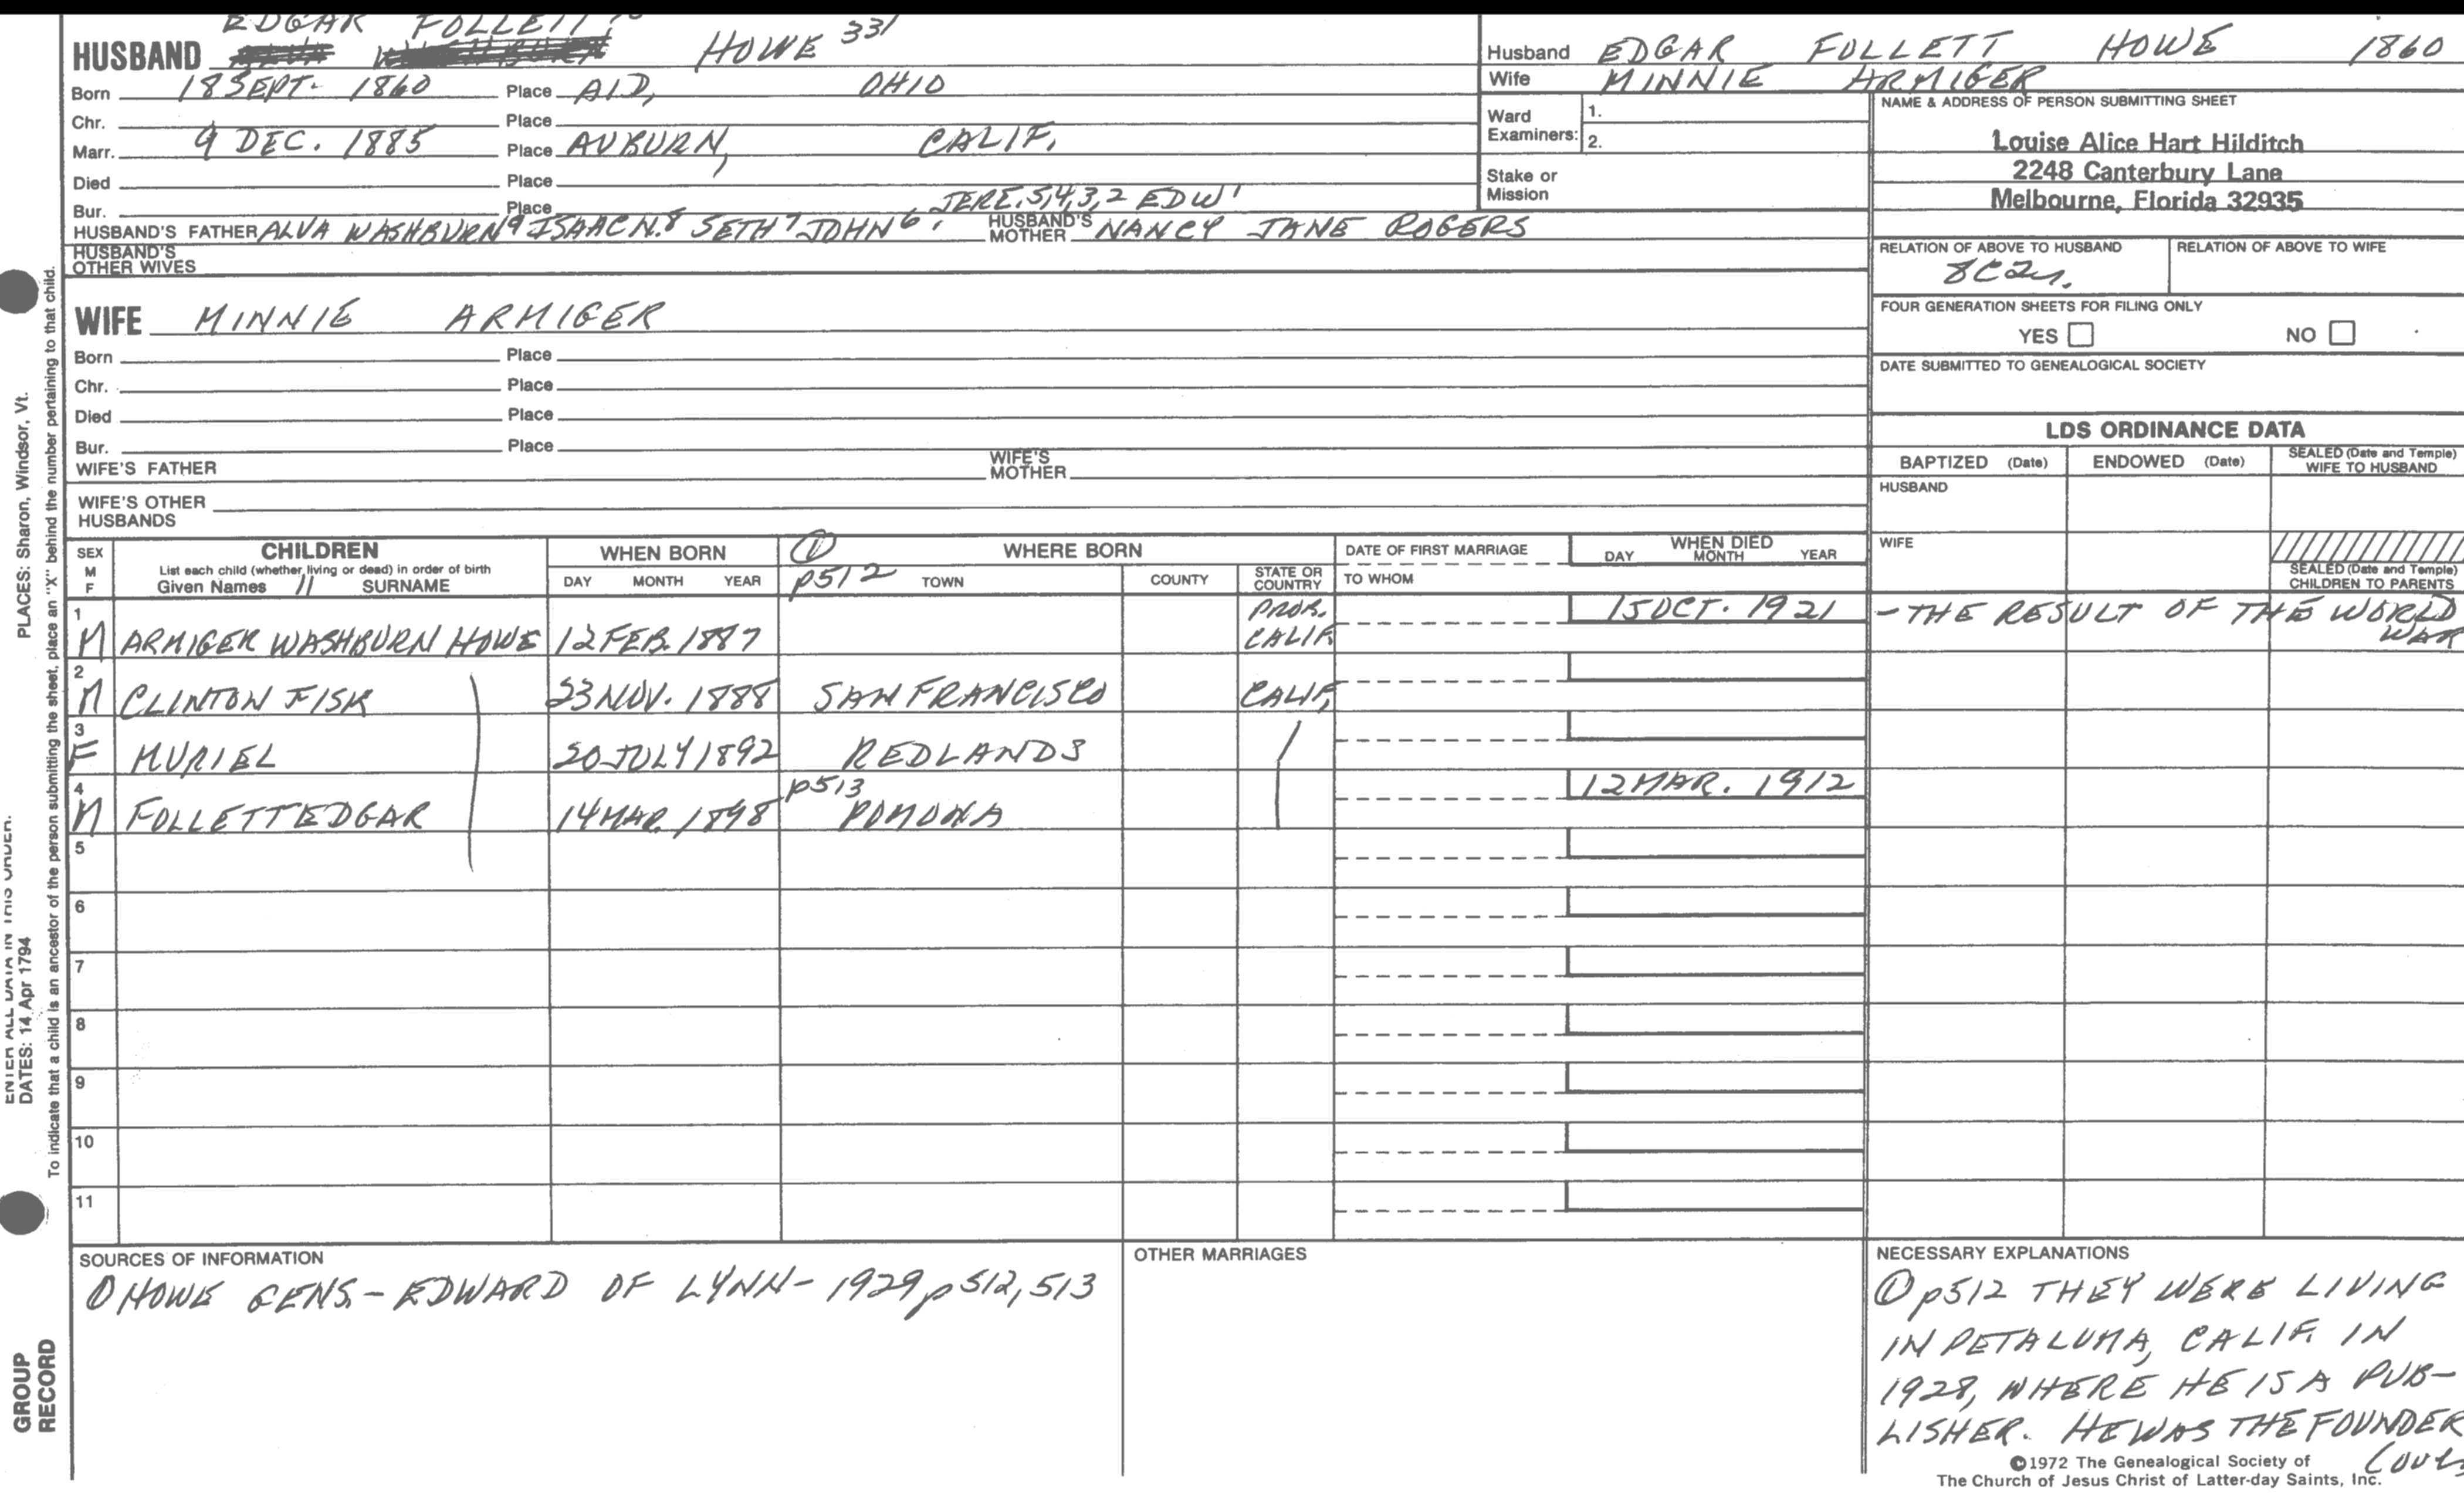 EDGAR FOLLETT
HUSBAND HOWE 331
Born 18 SEPT. 1860 Place AID, OHIO
Chr. Place
Marr. 9 DEC. 1885 Place AUBURN, CALIF.
Died Place
Bur. Place JERE. 5,4,3,2 EDW 1
HUSBAND'S FATHER ALVA WASHBURN 9 ISAAC N. 8 SETH 7 JOHN 6, HUSBAND'S MOTHER NANCY JANE ROGERS
HUSBAND'S OTHER WIVES
WIFE MINNIE ARMIGER
Born Place
Chr. Place
Died Place
Bur. Place
WIFE'S FATHER WIFE'S MOTHER
WIFE'S OTHER HUSBANDS
Husband EDGAR FOLLETT HOWE 1860
Wife MINNIE ARMIGER
Ward Examiners: 1.
2.
Stake or Mission
NAME & ADDRESS OF PERSON SUBMITTING SHEET
Louise Alice Hart Hilditch
2248 Canterbury Lane
Melbourne, Florida 32935
RELATION OF ABOVE TO HUSBAND RELATION OF ABOVE TO WIFE
8C2r.
FOUR GENERATION SHEETS FOR FILING ONLY
YES NO
DATE SUBMITTED TO GENEALOGICAL SOCIETY
LDS ORDINANCE DATA
BAPTIZED (Date) ENDOWED (Date) SEALED (Date and Temple) WIFE TO HUSBAND
HUSBAND
WIFE
SEALED (Date and Temple) CHILDREN TO PARENTS
SEX M F CHILDREN WHEN BORN ① WHERE BORN DATE OF FIRST MARRIAGE WHEN DIED
List each child (whether living or dead) in order of birth
Given Names // SURNAME DAY MONTH YEAR p512 TOWN COUNTY STATE OR COUNTRY TO WHOM DAY MONTH YEAR
1 M ARMIGER WASHBURN HOWE 12 FEB. 1887 PROB. CALIF. 15 OCT. 1921 - THE RESULT OF THE WORLD WAR
2 M CLINTON FISK 23 NOV. 1888 SAN FRANCISCO CALIF.
3 F MURIEL 20 JULY 1892 REDLANDS
4 M FOLLETT EDGAR 14 MAR. 1898 p513 POMONA 12 MAR. 1912
5
6
7
8
9
10
11
SOURCES OF INFORMATION
① HOWE GENS. - EDWARD OF LYNN - 1929 p 512, 513
OTHER MARRIAGES
NECESSARY EXPLANATIONS
① p512 THEY WERE LIVING
IN PETALUMA, CALIF. IN
1928, WHERE HE IS A PUB-
LISHER. HE WAS THE FOUNDER
(over
©1972 The Genealogical Society of
The Church of Jesus Christ of Latter-day Saints, Inc.
PLACES: Sharon, Windsor, Vt.
ENTER ALL DATA IN THIS ORDER.
DATES: 14 Apr 1794
To indicate that a child is an ancestor of the person submitting the sheet, place an "X" behind the number pertaining to that child.
GROUP
RECORD